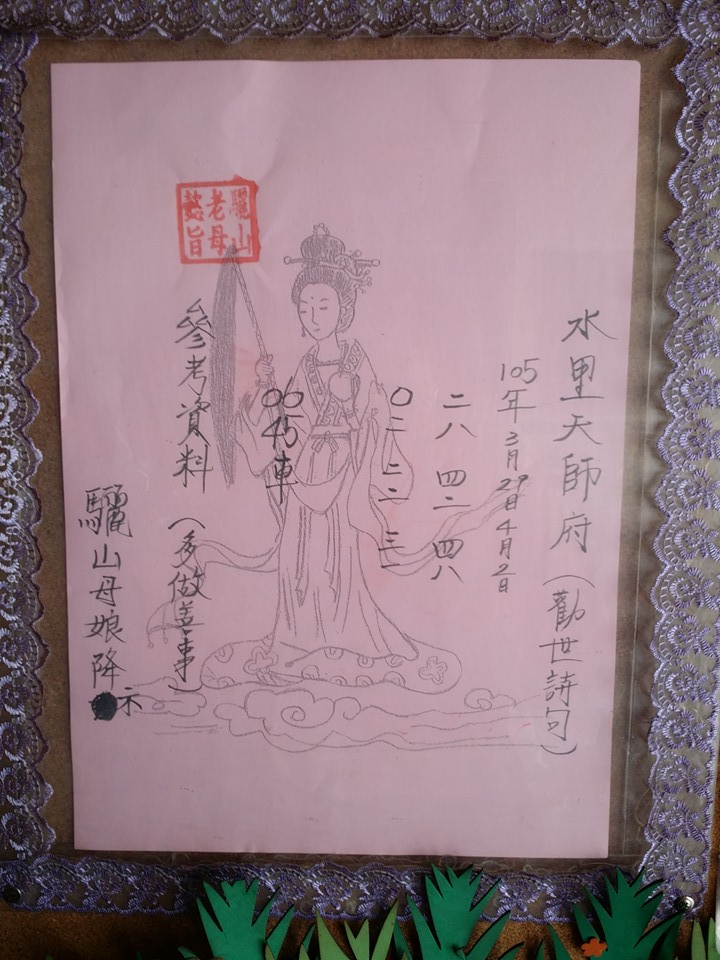 水里天師府(勸世詩句)
105年3月29日4月2日
二八 四二 四八
〇二 二二 三一
00 45車
參考資料(多做善事)
驪山母娘降示
驪山
老母
懿旨